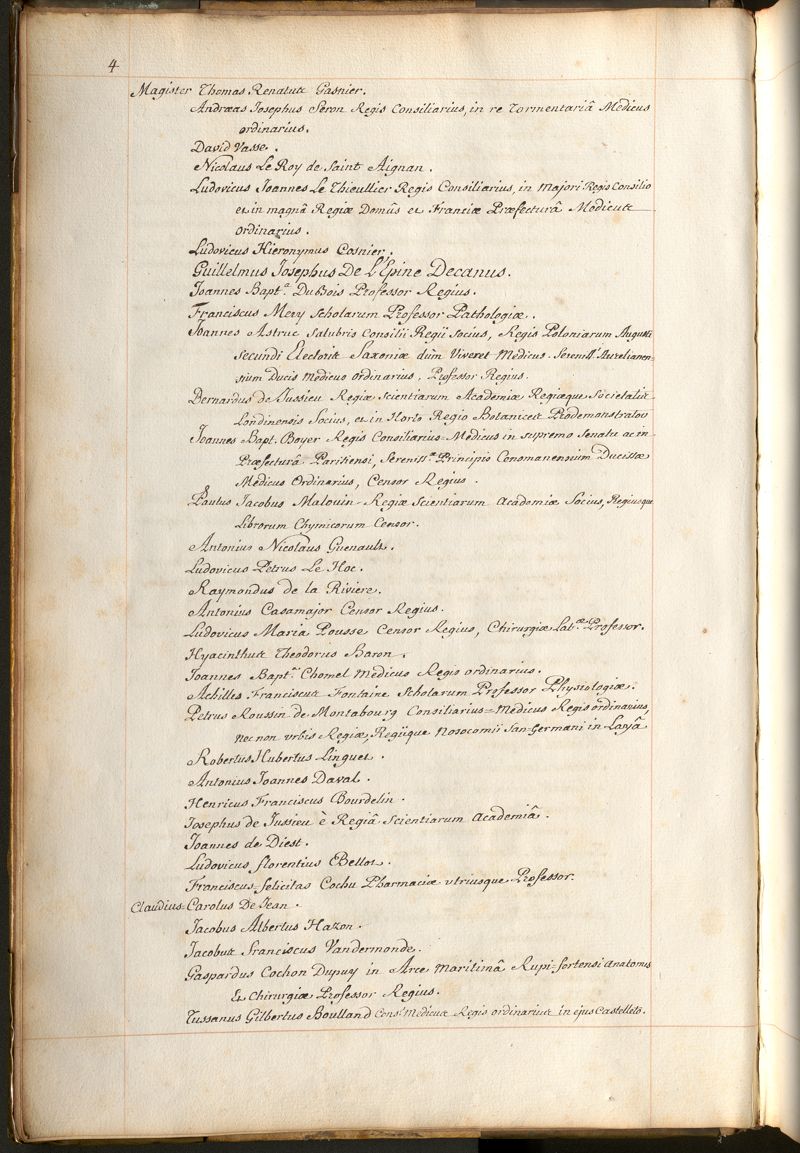 4
Magister Thomas Renatus Gasnier.
Andræas Josephus Seron Regis Consiliarius, in re Tormentariâ Medicus
ordinarius.
David Vasse.
Nicolaus Le Roy de Saint Aignan.
Ludovicus Joannes Le Thieullier Regis Consiliarius, in Majori Regis Consilio
et in magnâ Regiæ Domûs et Franciæ Præfecturâ Medicus
ordinarius.
Ludovicus Hieronymus Cosnier.
Guillelmus Josephus De L'Epine Decanus.
Joannes Bapt.a DuBois Professor Regius.
Franciscus Mery Scholarum Professor Pathologiæ.
Joannes Astruc Salubris Consilii Regii Socius, Regis Poloniarum Augusti
Secundi Electoris Saxoniæ dùm Viveret Medicus. Sereniss.i Aurelianen-
sium Ducis Medicus ordinarius. Professor Regius.
Bernardus de Jussieu Regiæ Scientiarum Academiæ Regiæque Societatis
Londinensis Socius, et in Horto Regio Botanices Prodemonstrator
Joannes Bapt. Boyer Regis Consiliarius=Medicus in supremo Senatu ac in
Præfecturâ Parisiensi, Sereniss.æ Principis Cenomanensium Ducissæ
Medicus Ordinarius, Censor Regius.
Paulus Jacobus Malouin Regiæ Scientiarum Academiæ Socius, Regiusque
Librorum Chymicorum Censor.
Antonius Nicolaus Guenault.
Ludovicus Petrus Le Hoc.
Raymondus de la Riviere.
Antonius Casamajor Censor Regius.
Ludovicus Maria Pousse Censor Regius, Chirurgiæ Lat.æ Professor.
Hyacinthus Theodorus Baron.
Joannes Bapt.a Chomel Medicus Regis ordinarius.
Achilles Franciscus Fontaine Scholarum Professor Physiologiæ.
Petrus Roussin de Montabourg Consiliarius=Medicus Regis ordinarius,
necnon urbis Regiæ, Regiique Nosocomii San-Germani in Layâ
Robertus Hubertus Linguet.
Antonius Joannes Daval.
Henricus Franciscus Bourdelin.
Josephus de Jussieu è Regiâ Scientiarum Academiâ.
Joannes de Diest.
Ludovicus florentius Bellot.
Franciscus felicitas Cochu Pharmaciæ utriusque Professor.
Claudius=Carolus De Jean.
Jacobus Albertus Hazon.
Jacobus Franciscus Vandermonde.
Gaspardus Cochon Dupuy in Arce Maritimâ Rupi-fortensi anatomes
Et Chirurgiæ Professor Regius.
Tussanus Gilbertus Boulland Cons.r Medicus Regis ordinarius in ejus Castelleto.